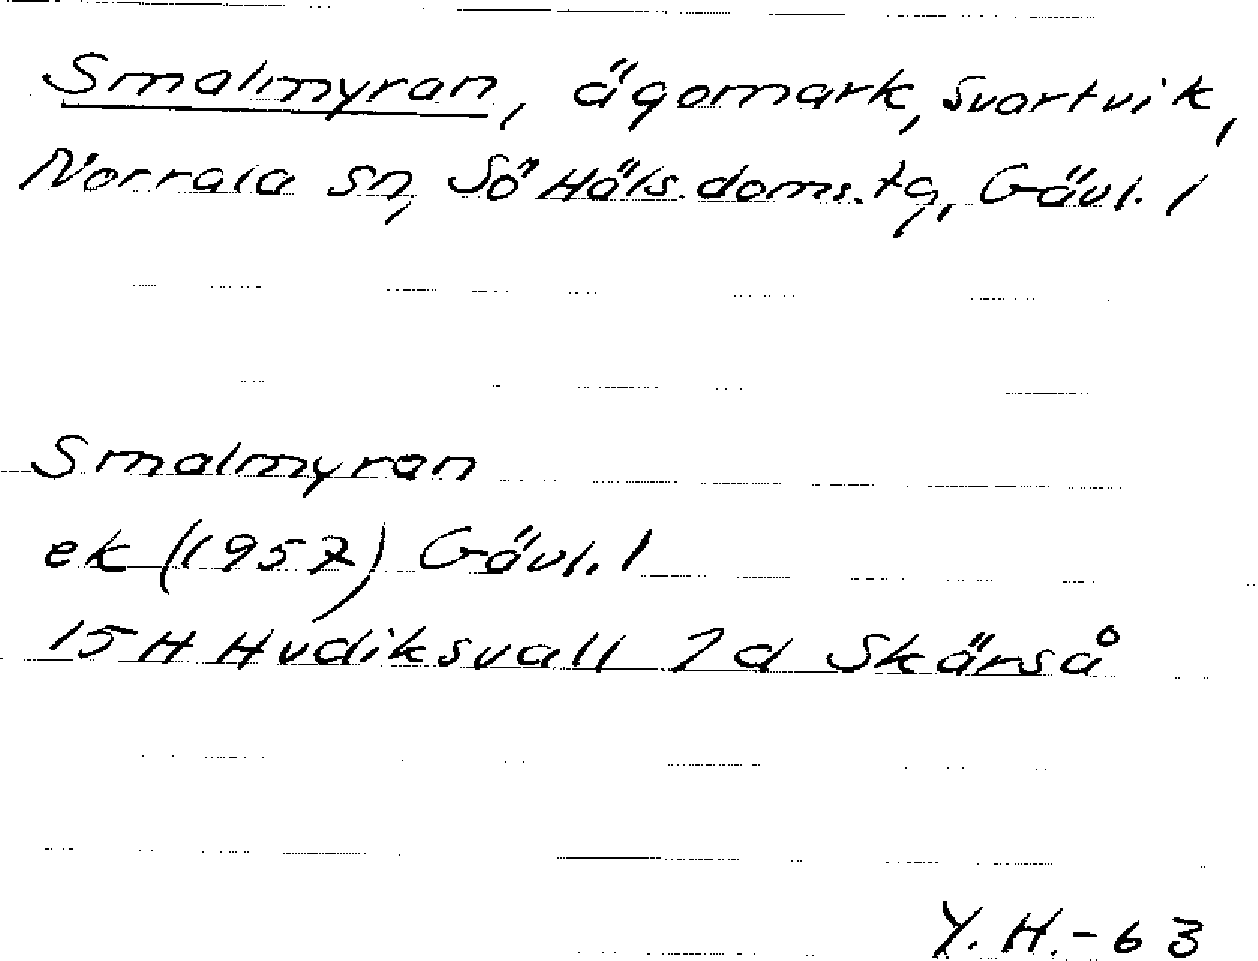 Smalmyran, ägomark, Svartvik,
Norrala sn, Sö Häls. doms. tg, Gävl. l
Smalmyran
ek (1957) Gävl. l
15 H Hudiksvall 2 d Skärså
Y. H. - 63